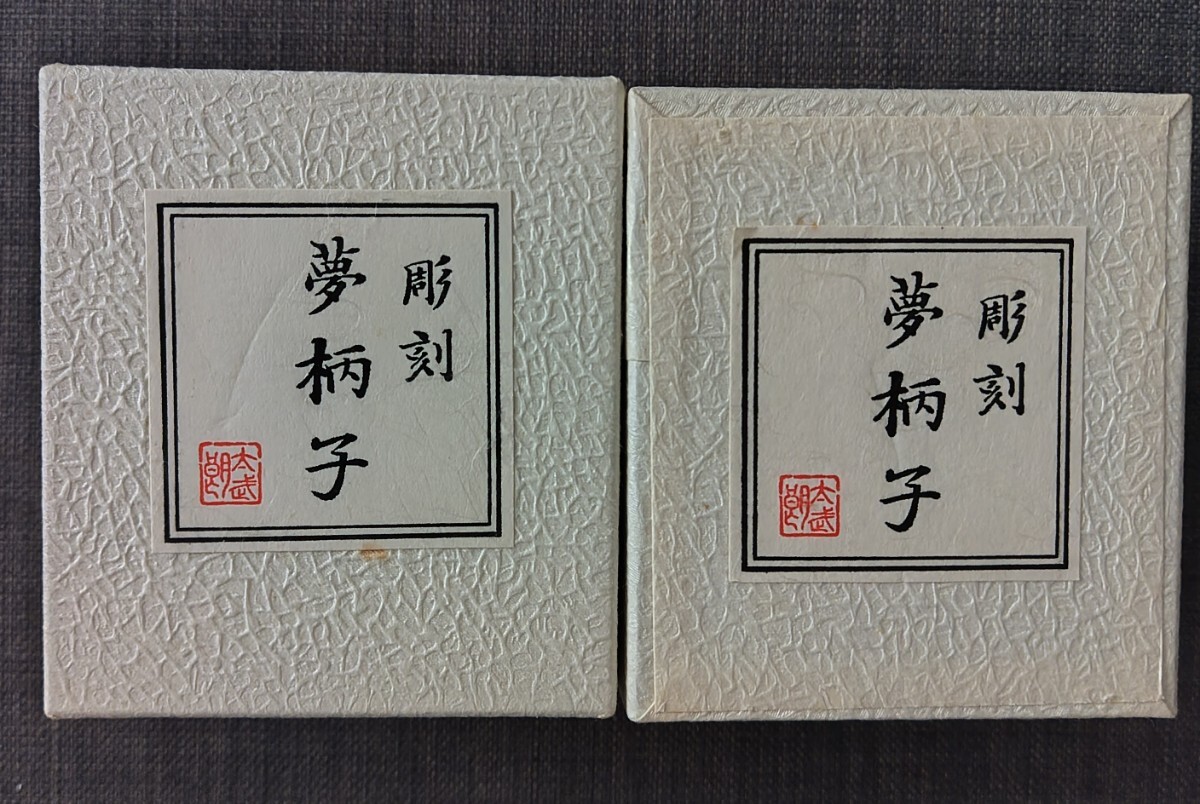 彫刻
夢柄子
太武朗
彫刻
夢柄子
太武朗